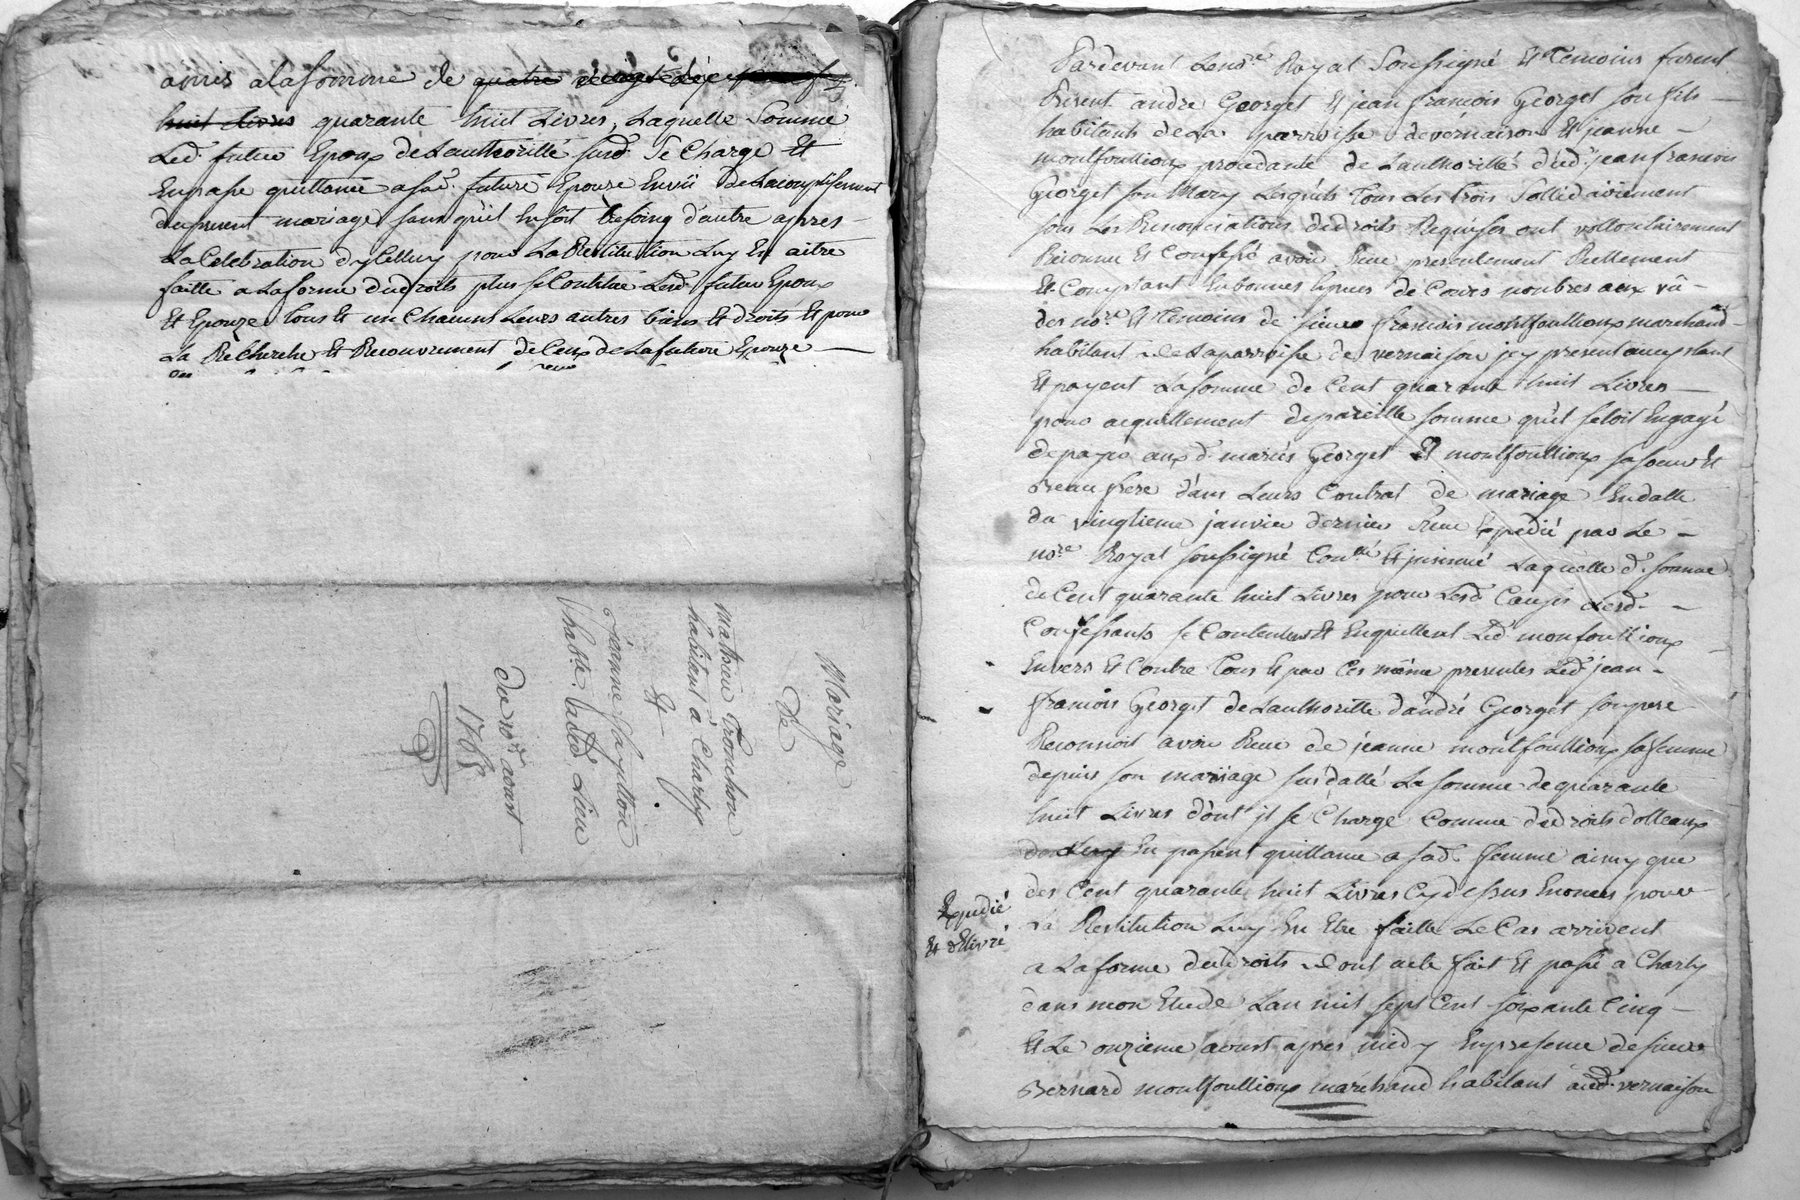 amis a la somme de quatre vingt dix
huit livres quarante huit Livres, Laquelle Somme
Led. futur Epoux de Lauthoritté susd. Se Charge Et
En passe quittance a sad. future Epouze Envii de Lacomplisement
du present mariage sans qu'il En soit besoing d'autre apres
La Celebration dyCelluy pour La Restitution Luy En aitre
faitte a La forme du droits plus se Contitüe Lesd. futur Epoux
Et Epouze tous Et un Chacuns Leurs autres biens Et droits Et pour
La Recherche Et Recouvrement de Ceux de La future Epouze
Mariage
De
mathieu Tronchon
habitant a Charly
Et
Jeanne
habte. aud. Lieu
du 10e. aoust
1765
Pardevant Le nore. Royal Soussigné Et Temoins furent
Present andre Georget Et jean francois Georget son fils
habitants de La parroisse de vernaison Et jeanne
montfoullioux procedante de Lauthoritté dud. jean francois
Georget son Mary Lesquels Tous Les Trois Sollidairement
sous Les Renonciations de droits Requises ont vollontairement
Reconnu Et Confessé avoir Reçu presentement Reellement
Et Comptant En bonnes Especes de Cours nombres aux vû
des nore. Et Temoins de sieur francois montfoullioux marchand
habitant de La parroisse de vernaison jcy present acceptant
Et payent La somme de Cent quarante huit Livres
pour acquittement de pareille somme qu'il s'etoit Engagé
de payer aux d. mariés Georget Et montfoullioux sa soeur Et
Beau frere dans Leurs Contrat de mariage En datte
du vingtieme janvier dernier Reçu Expedié par Le
nore. Royal soussigné Conllé. Et jnsinué Laquelle d. somme
de Cent quarante huit Livres pour Lesd. Causes Lesd.
Confessants se Contentent Et En quittent Led. monfoullioux
Envers Et Contre Tous Et par Ces même presentes Led. jean
francois Georget de Lauthoritté d'andré Georget son pere
Reconnoit avoir Reçu de jeanne montfoullioux sa femme
depuis son mariage sus datté La somme de quarante
huit Livres dont jl se Charge Comme de droits dotteaux
En passent quittance a sad. femme ainsy que
des Cent quarante huit Livres Cy dessus Enoncés pour
La Restitution Luy En Etre faitte Le Cas arrivent
a La forme du droits dont acte fait Et passé a Charly
dans mon Etude Lan mil sept Cent soixante Cinq
Et Le onzieme aoust apres midy En presence de sieur
Bernard montfoullioux marchand habitant aud. vernaison
Expedié
Et délivré